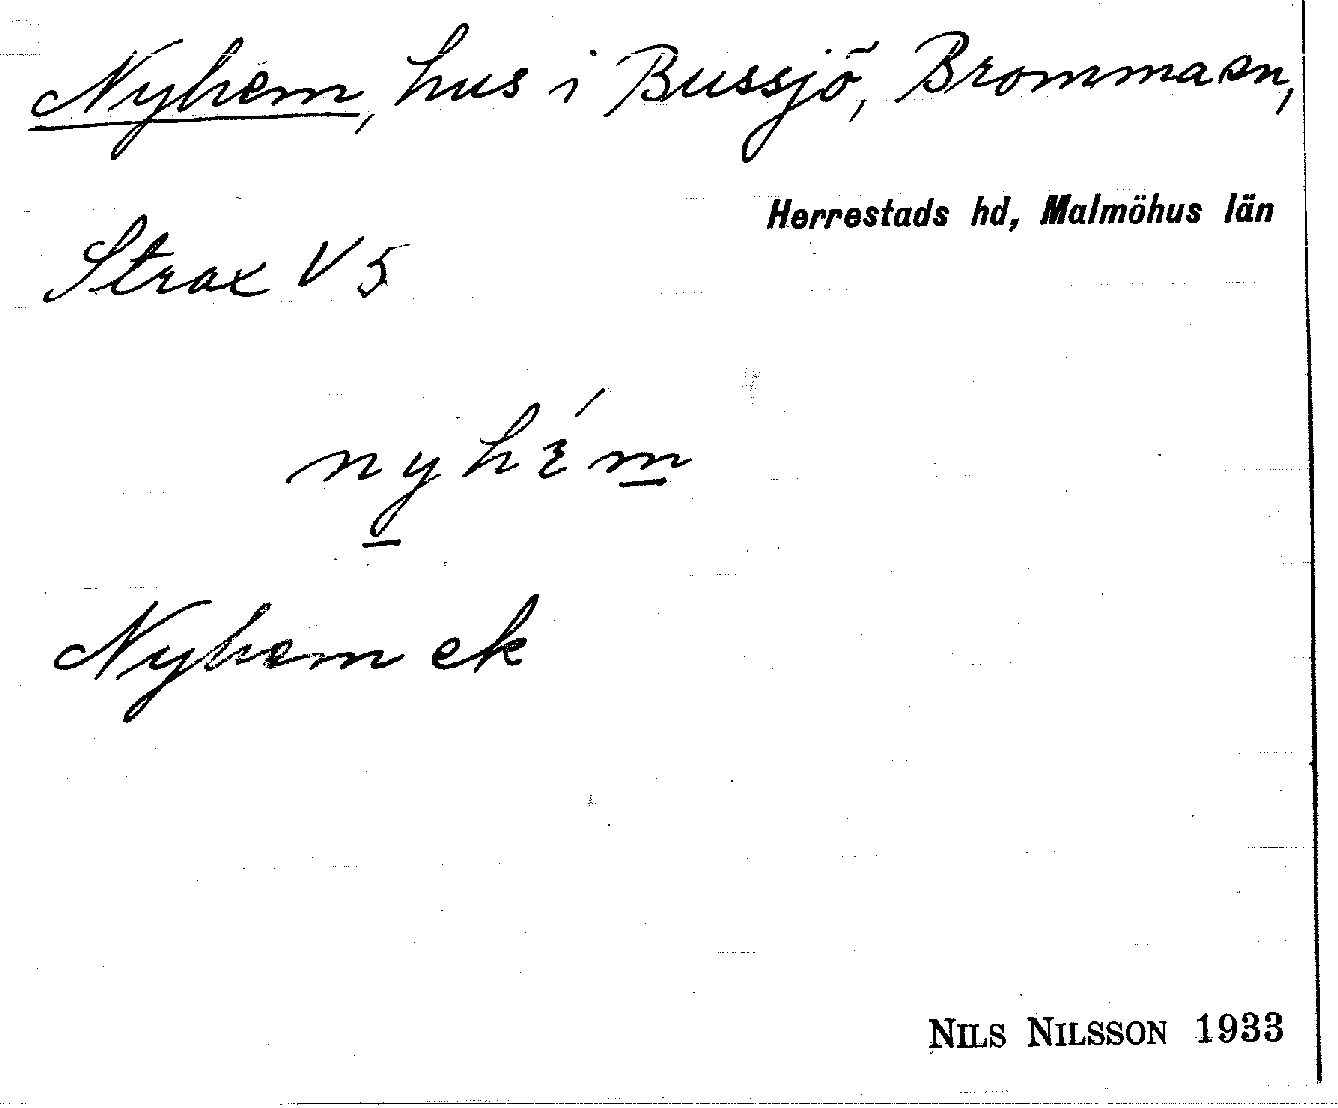 Nyhem, hus i Bussjö, Bromma sn,
Herrestads hd, Malmöhus län
Strax V 5
nyhém
Nyhem ek
NILS NILSSON 1933